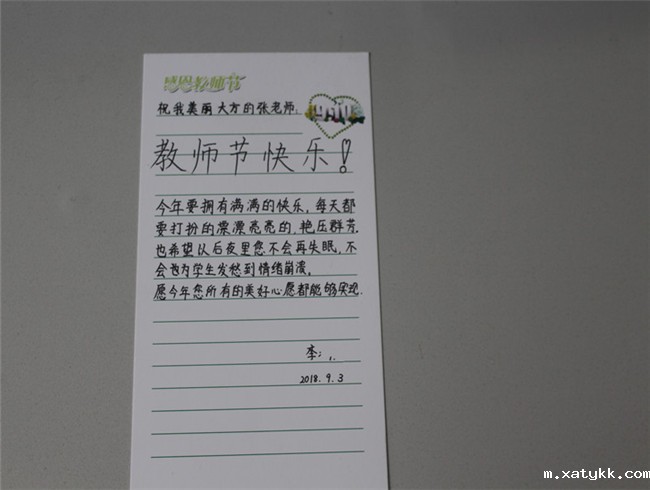 感恩教师节
祝我美丽大方的张老师:
9月10日
教师节快乐!
今年要拥有满满的快乐,每天都
要打扮的漂漂亮亮的,艳压群芳.
也希望以后夜里您不会再失眠,不
会也为学生发愁到情绪崩溃,
愿今年您所有的美好心愿都能够实现.
李:
2018.9.3
m.xatykk.com